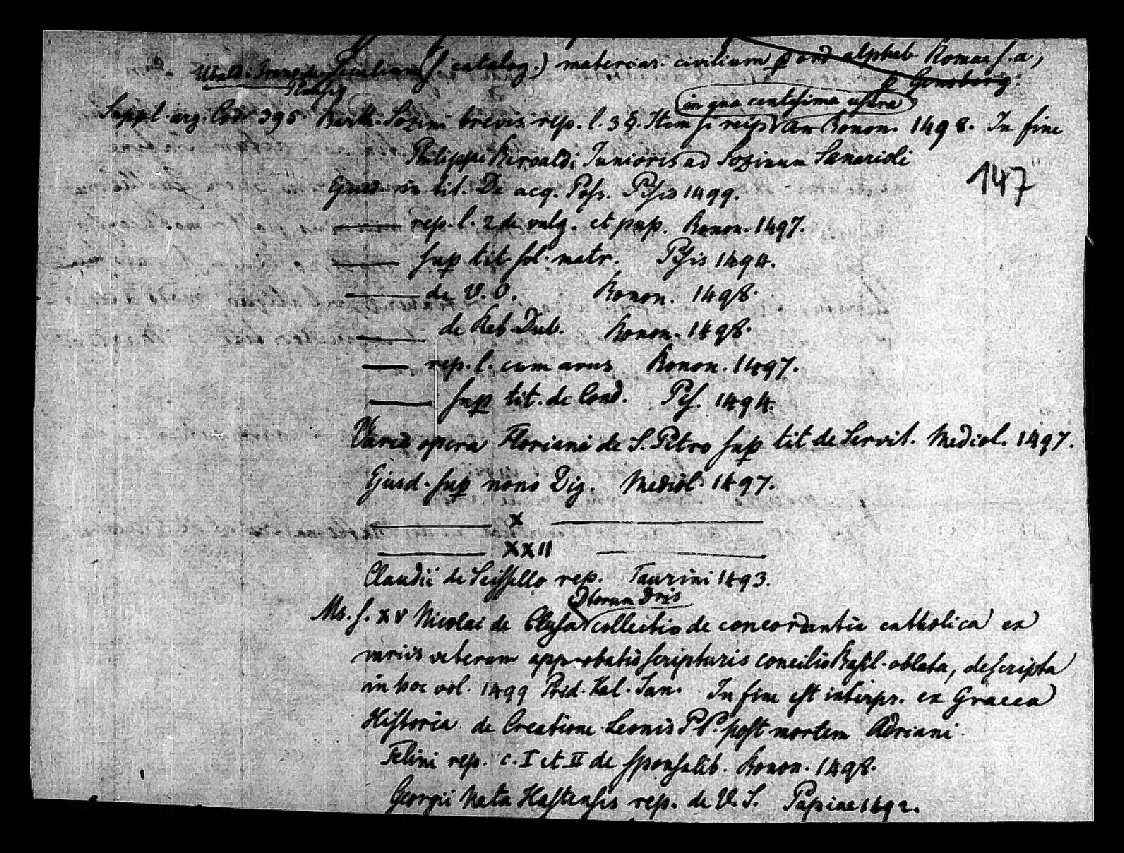 catalog.) materiar. civilium p ord alphab Romae s. a,
in qua centesima extra
Suppl. arg. Cod. 395 Barth. Sozini brevis rep. l. 38. Item si reips an Bonon. 1498. In fine
Philippi Beroaldi Junioris ad Sozinum
147
Ejusd. in tit. De acq. Poss. Pisis 1499.
—— rep. l. 2 de vulg. et pup. Bonon. 1497.
—— sup tit sol. matr. Pisis 1494.
—— de V. O. Bonon. 1498.
—— de Reb. Dub. Bonon. 1498.
—— rep. l. cum avus Bonon. 1497.
—— sup tit. de Cond. Pis. 1494.
Varia opera Floriani de S. Petro sup tit de Servit. Mediol. 1497.
Ejusd. sup nono Dig. Mediol. 1497.
—— X ——
—— XXII ——
Claudii de Seissello rep. Taurini 1493.
Ms. s. XV Nicolai de Clusa collectio de concordantia catholica ex
variis veterum approbatis scripturis concilio Basil. oblata, descripta
in hoc vol. 1499 Prid. Kal. Jan. In fine est interpr. ex Graeca
Historia de Creatione Leonis PP. post mortem Adriani
Felini rep. c. I et II de sponsalib. Bonon. 1498.
Georgii Nata Hastensis rep. de V. S. Papiae 1492.